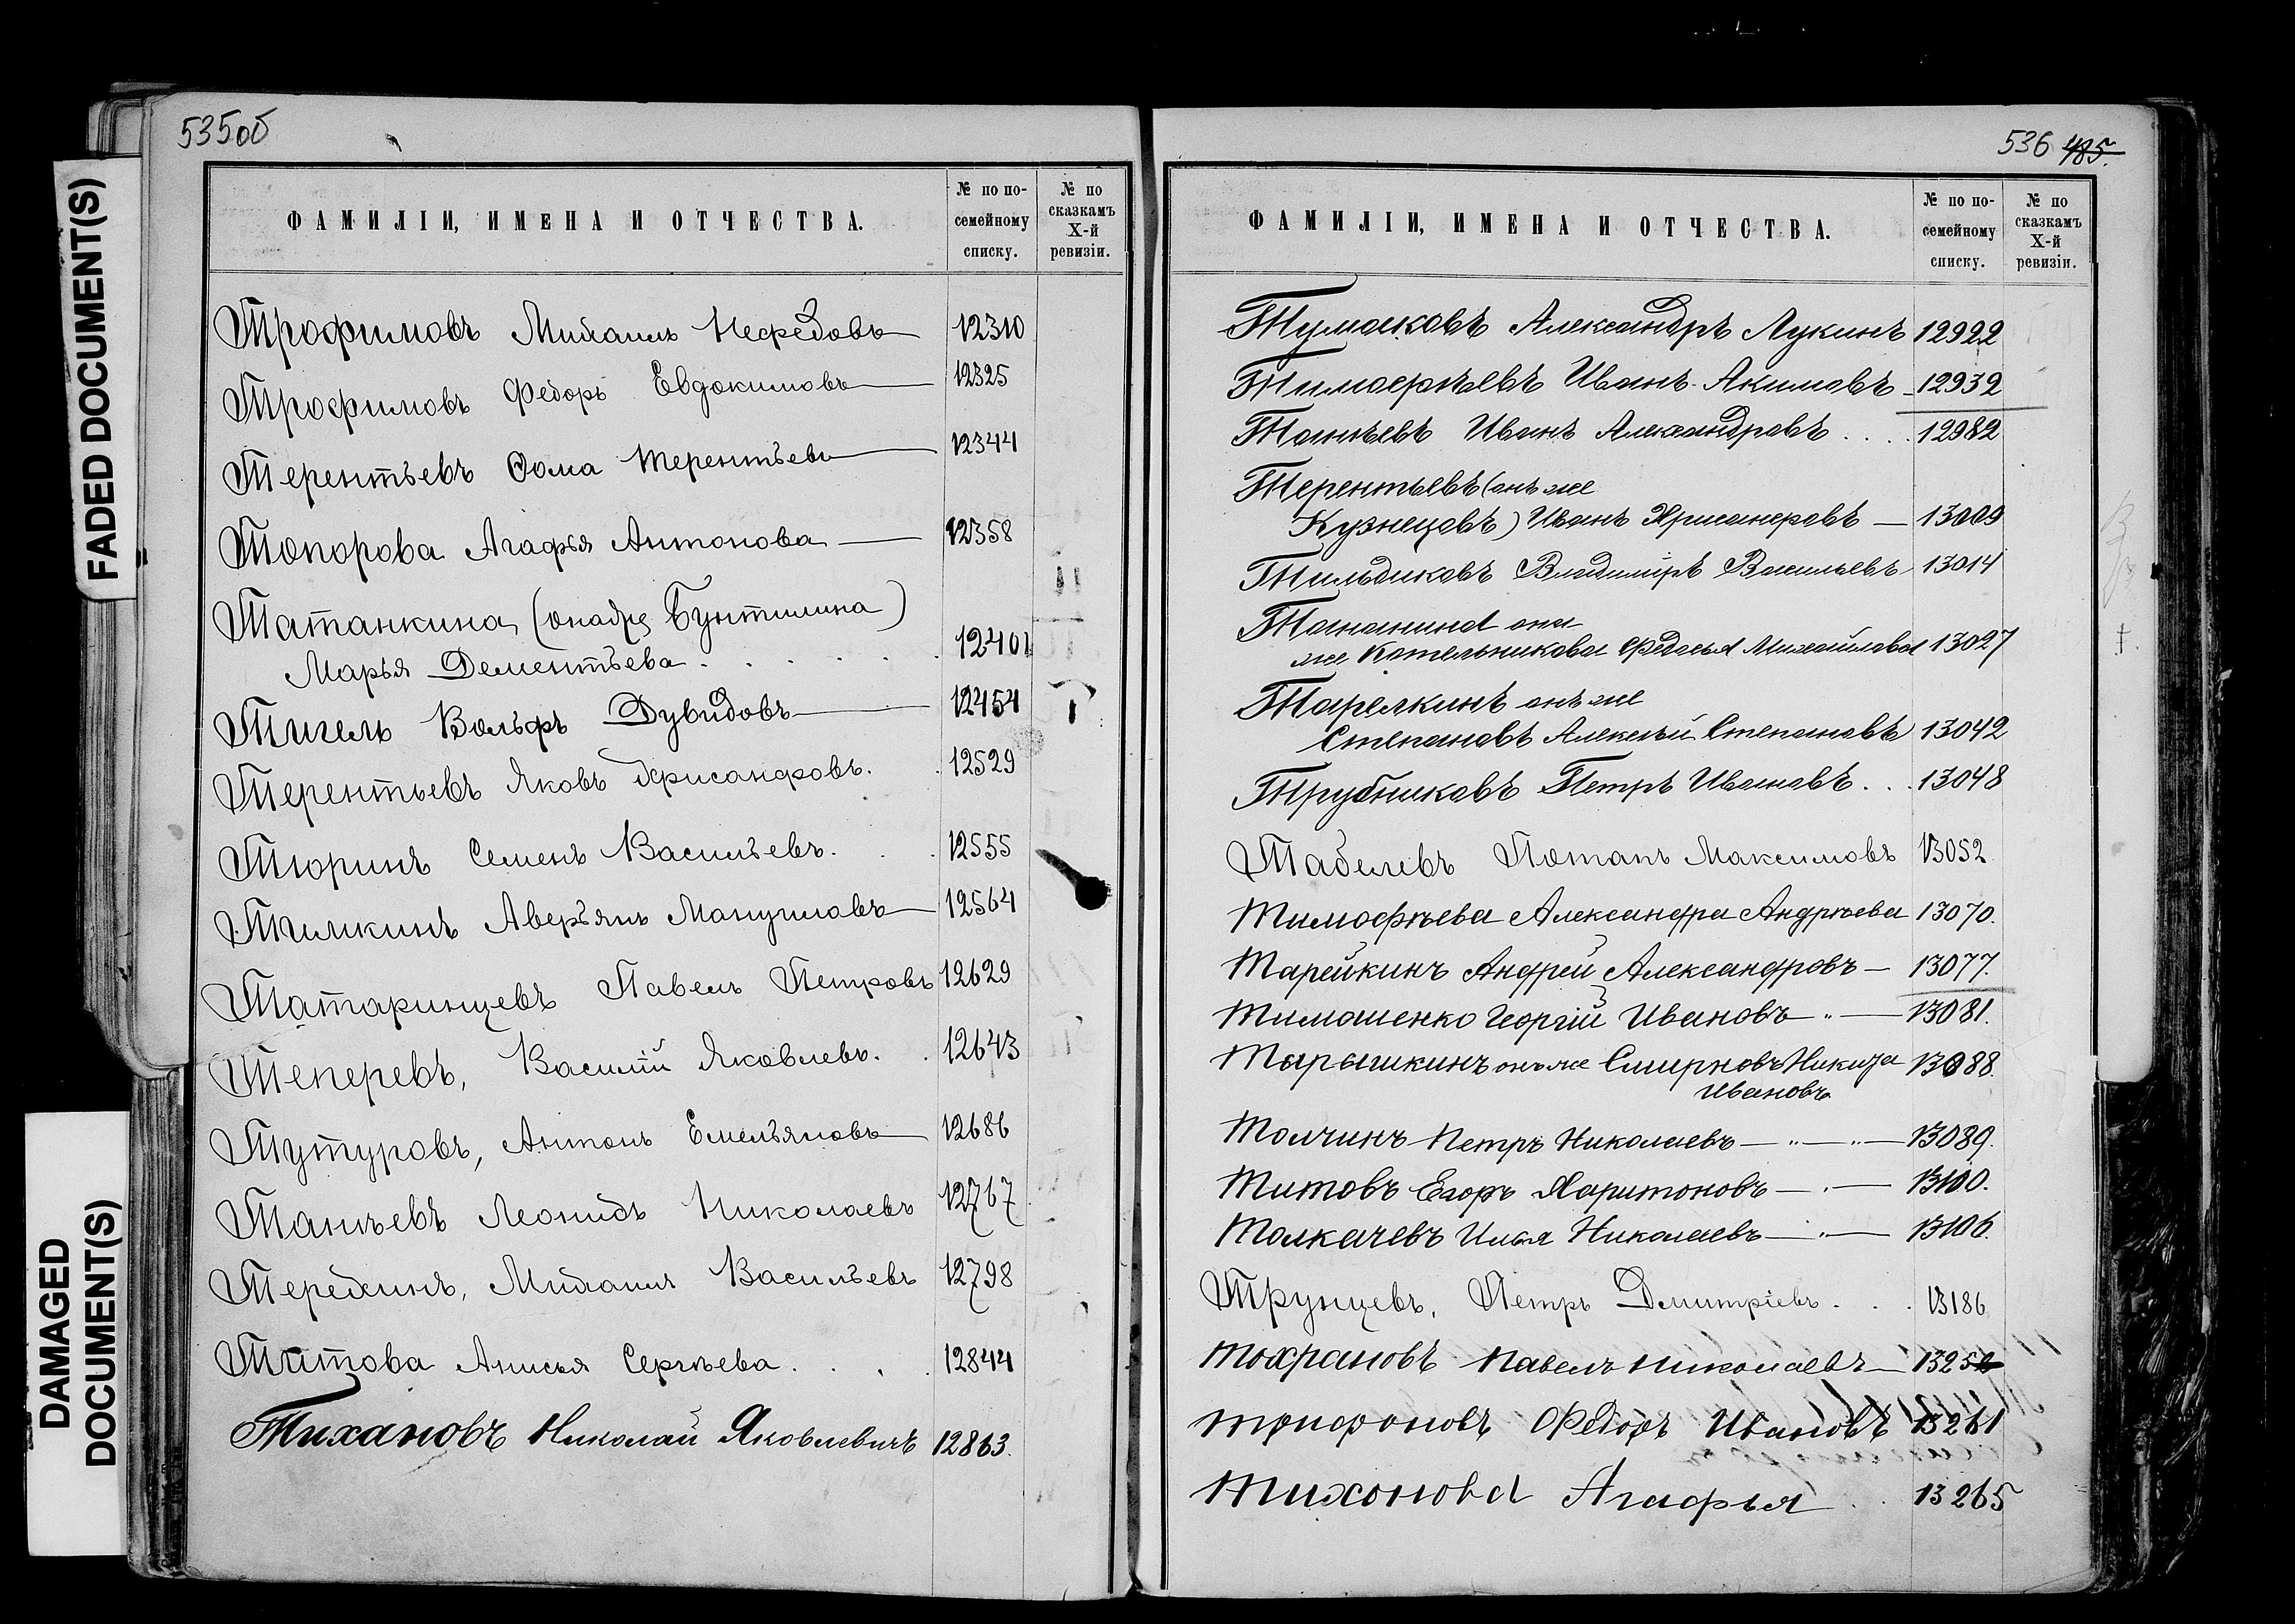 535об
ФАМИЛІИ, ИМЕНА И ОТЧЕСТВА.
№ по по-семейному списку.
№ по сказкамъ X-й ревизіи.
Трофимовъ Михаилъ Нефедовъ — 12310
Трофимовъ Федоръ Евдокимовъ — 12325
Терентъевъ Ѳома Терентъевъ — 12344
Топорова Агафья Антонова — 12358
Татанкина (она же Бунтилина)
Марья Дементъева . . . . . 12401
Тигель Вольфъ Дувидовъ — 12454
Терентьевъ Яковъ Хрисанфовъ. . 12529
Тюринъ Семенъ Васильевъ. . . 12555
Тимкинъ Аверъянъ Мануиловъ — 12564
Татаринцевъ Павелъ Петровъ 12629
Теперевъ, Василій Яковлевъ. . 12643
Тутуровъ, Антонъ Емелъяновъ — 12686
Танѣевъ Леонидъ Николаевъ 12767
Терехинъ, Михаилъ Васильевъ 12798
Титова Анисья Сергѣева . . . 12844
Тихановъ Николай Яковлевичъ 12863.
536 485.
ФАМИЛІИ, ИМЕНА И ОТЧЕСТВА.
№ по по-семейному списку.
№ по сказкамъ X-й ревизіи.
Тумаковъ Александръ Лукинъ 12922
Тимофѣевъ Иванъ Акимовъ 12939
Танѣевъ Иванъ Александровъ . . . . 12982
Терентьевъ (онъ же
Кузнецовъ) Иванъ Хрисанфовъ — 13009
Тильдиковъ Владиміръ Васильевъ 13014
Тананина она
же Котельникова Федосья Михайлова 13027
Тарелкинъ онъ же
Степановъ Алексѣй Степановъ 13042
Трубниковъ Петръ Ивановъ . . . 13048
Табелевъ Потапъ Максимовъ 13052
Тимофѣева Александра Андрѣева 13070.
Тарейкинъ Андрей Александровъ — 13077.
Тимошенко Георгій Ивановъ — " — 13081.
Тарышкинъ онъ же Смирновъ Никита 13088.
Ивановъ
Толчинъ Петръ Николаевъ — " — " — 13089.
Титовъ Егоръ Харитоновъ — . — 13100.
Толкачевъ Илья Николаевъ — " — 13106.
Трунцевъ, Петръ Дмитріевъ. . . 13186
Тохрановъ Павелъ Николаевъ — 13252
Трифоновъ Федоръ Ивановъ 13261
Тихонова Агафья . . 13265
FADED DOCUMENT(S)
DAMAGED
DOCUMENT(S)